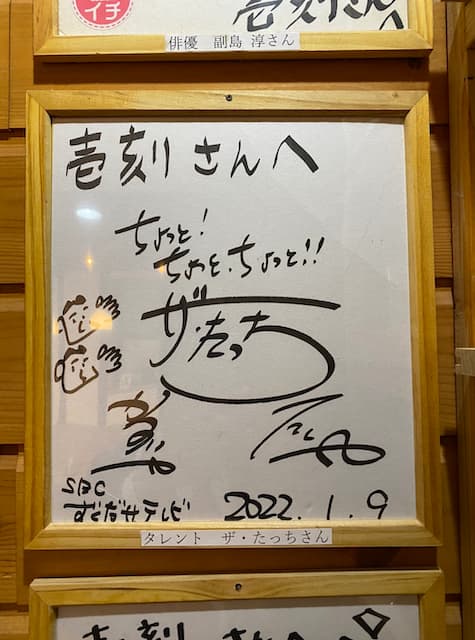 イチ
壱刻さんへ
俳優 副島 淳さん
壱刻さんへ
ちょっと!
ちょっと、ちょっと!!
ザ・たっち
かずや
たくや
SBC
ずくだせテレビ
2022.1.9
タレント ザ・たっちさん
壱刻さんへ